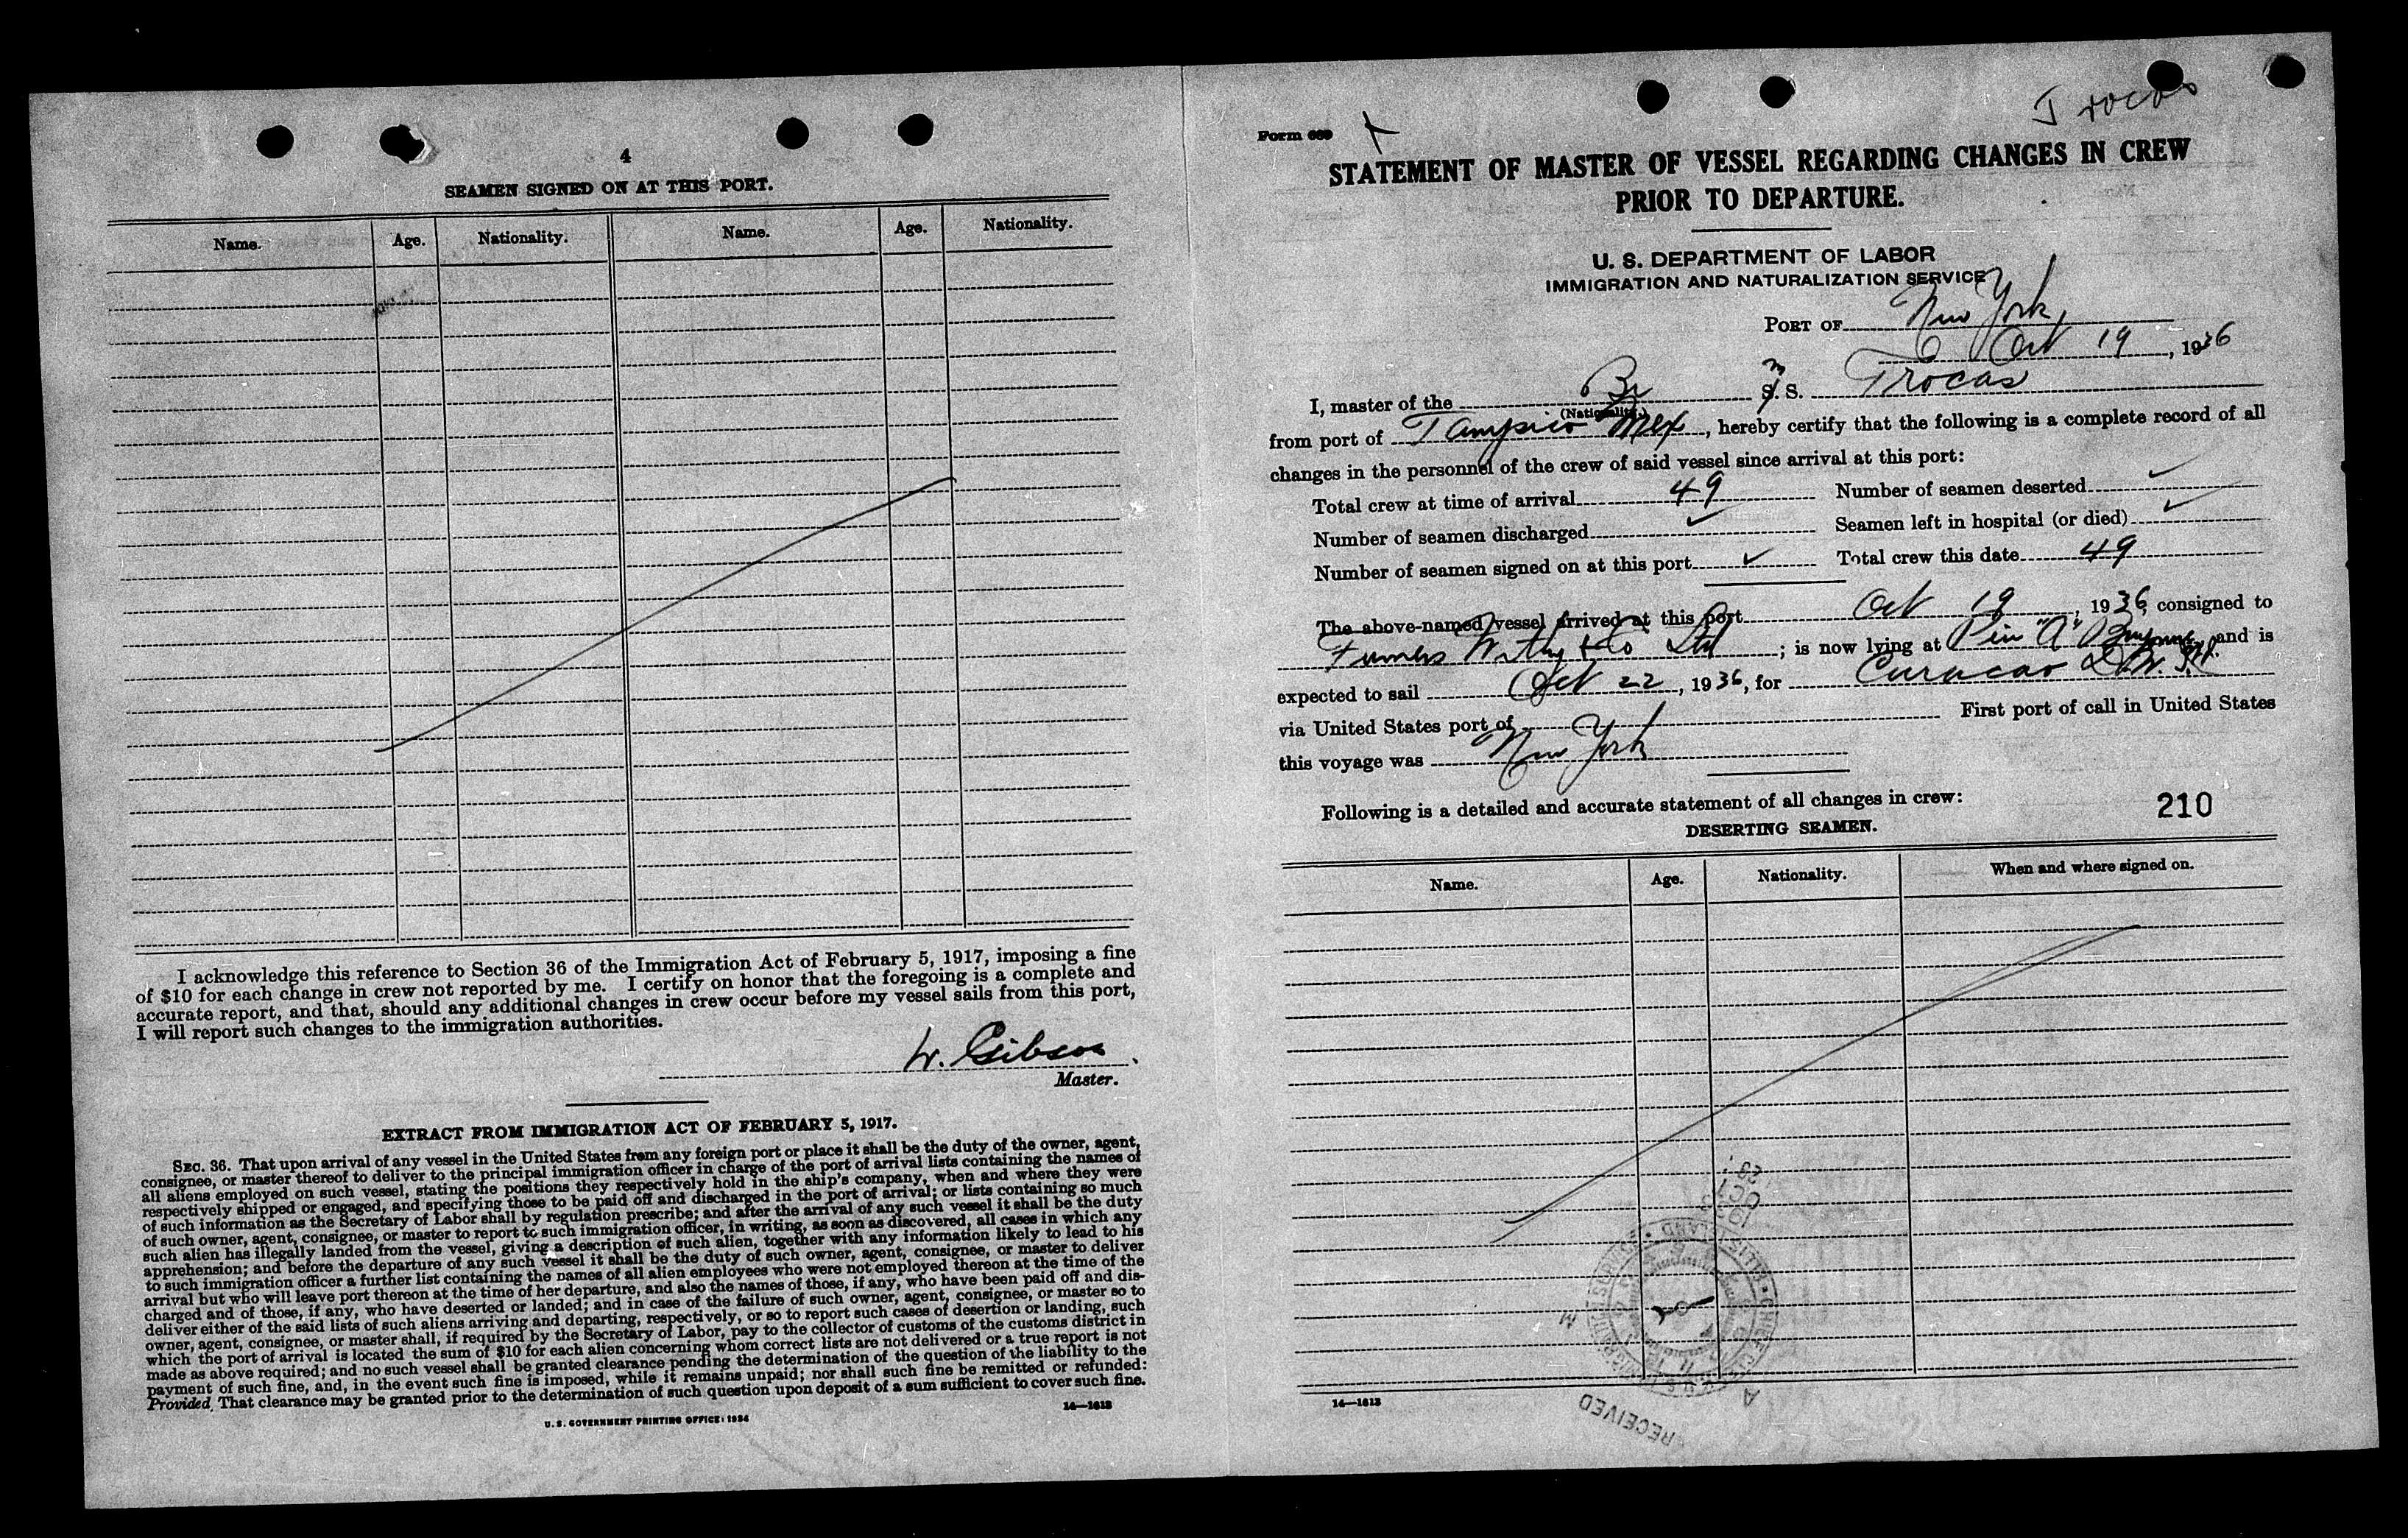 4
SEAMEN SIGNED ON AT THIS PORT.
Name. Age. Nationality. Name. Age. Nationality.
I acknowledge this reference to Section 36 of the Immigration Act of February 5, 1917, imposing a fine
of $10 for each change in crew not reported by me. I certify on honor that the foregoing is a complete and
accurate report, and that, should any additional changes in crew occur before my vessel sails from this port,
I will report such changes to the immigration authorities.
W. Gibson
Master.
EXTRACT FROM IMMIGRATION ACT OF FEBRUARY 5, 1917.
SEC. 36. That upon arrival of any vessel in the United States from any foreign port or place it shall be the duty of the owner, agent,
consignee, or master thereof to deliver to the principal immigration officer in charge of the port of arrival lists containing the names of
all aliens employed on such vessel, stating the positions they respectively hold in the ship's company, when and where they were
respectively shipped or engaged, and specifying those to be paid off and discharged in the port of arrival; or lists containing so much
of such information as the Secretary of Labor shall by regulation prescribe; and after the arrival of any such vessel it shall be the duty
of such owner, agent, consignee, or master to report to such immigration officer, in writing, as soon as discovered, all cases in which any
such alien has illegally landed from the vessel, giving a description of such alien, together with any information likely to lead to his
apprehension; and before the departure of any such vessel it shall be the duty of such owner, agent, consignee, or master to deliver
to such immigration officer a further list containing the names of all alien employees who were not employed thereon at the time of the
arrival but who will leave port thereon at the time of her departure, and also the names of those, if any, who have been paid off and dis-
charged and of those, if any, who have deserted or landed; and in case of the failure of such owner, agent, consignee, or master so to
deliver either of the said lists of such aliens arriving and departing, respectively, or so to report such cases of desertion or landing, such
owner, agent, consignee, or master shall, if required by the Secretary of Labor, pay to the collector of customs of the customs district in
which the port of arrival is located the sum of $10 for each alien concerning whom correct lists are not delivered or a true report is not
made as above required; and no such vessel shall be granted clearance pending the determination of the question of the liability to the
payment of such fine, and, in the event such fine is imposed, while it remains unpaid; nor shall such fine be remitted or refunded:
Provided, That clearance may be granted prior to the determination of such question upon deposit of a sum sufficient to cover such fine.
U. S. GOVERNMENT PRINTING OFFICE: 1934
14—1613
Trocas
Form 689
STATEMENT OF MASTER OF VESSEL REGARDING CHANGES IN CREW
PRIOR TO DEPARTURE.
U. S. DEPARTMENT OF LABOR
IMMIGRATION AND NATURALIZATION SERVICE
PORT OF New York,
Oct 19, 1936
I, master of the Br M S. Trocas
(Nationality.)
from port of Tampico Mex, hereby certify that the following is a complete record of all
changes in the personnel of the crew of said vessel since arrival at this port:
Total crew at time of arrival 49 Number of seamen deserted ✓
Number of seamen discharged ✓ Seamen left in hospital (or died) ✓
Number of seamen signed on at this port ✓ Total crew this date 49
The above-named vessel arrived at this port Oct 19, 1936, consigned to
Furness Withy & Co Ltd; is now lying at Pier "A" Bayonne, and is
expected to sail Oct 22, 1936, for Curacao
via United States port of First port of call in United States
this voyage was New York
Following is a detailed and accurate statement of all changes in crew:
210
DESERTING SEAMEN.
Name. Age. Nationality. When and where signed on.
OCT 23
RECEIVED
14—1613